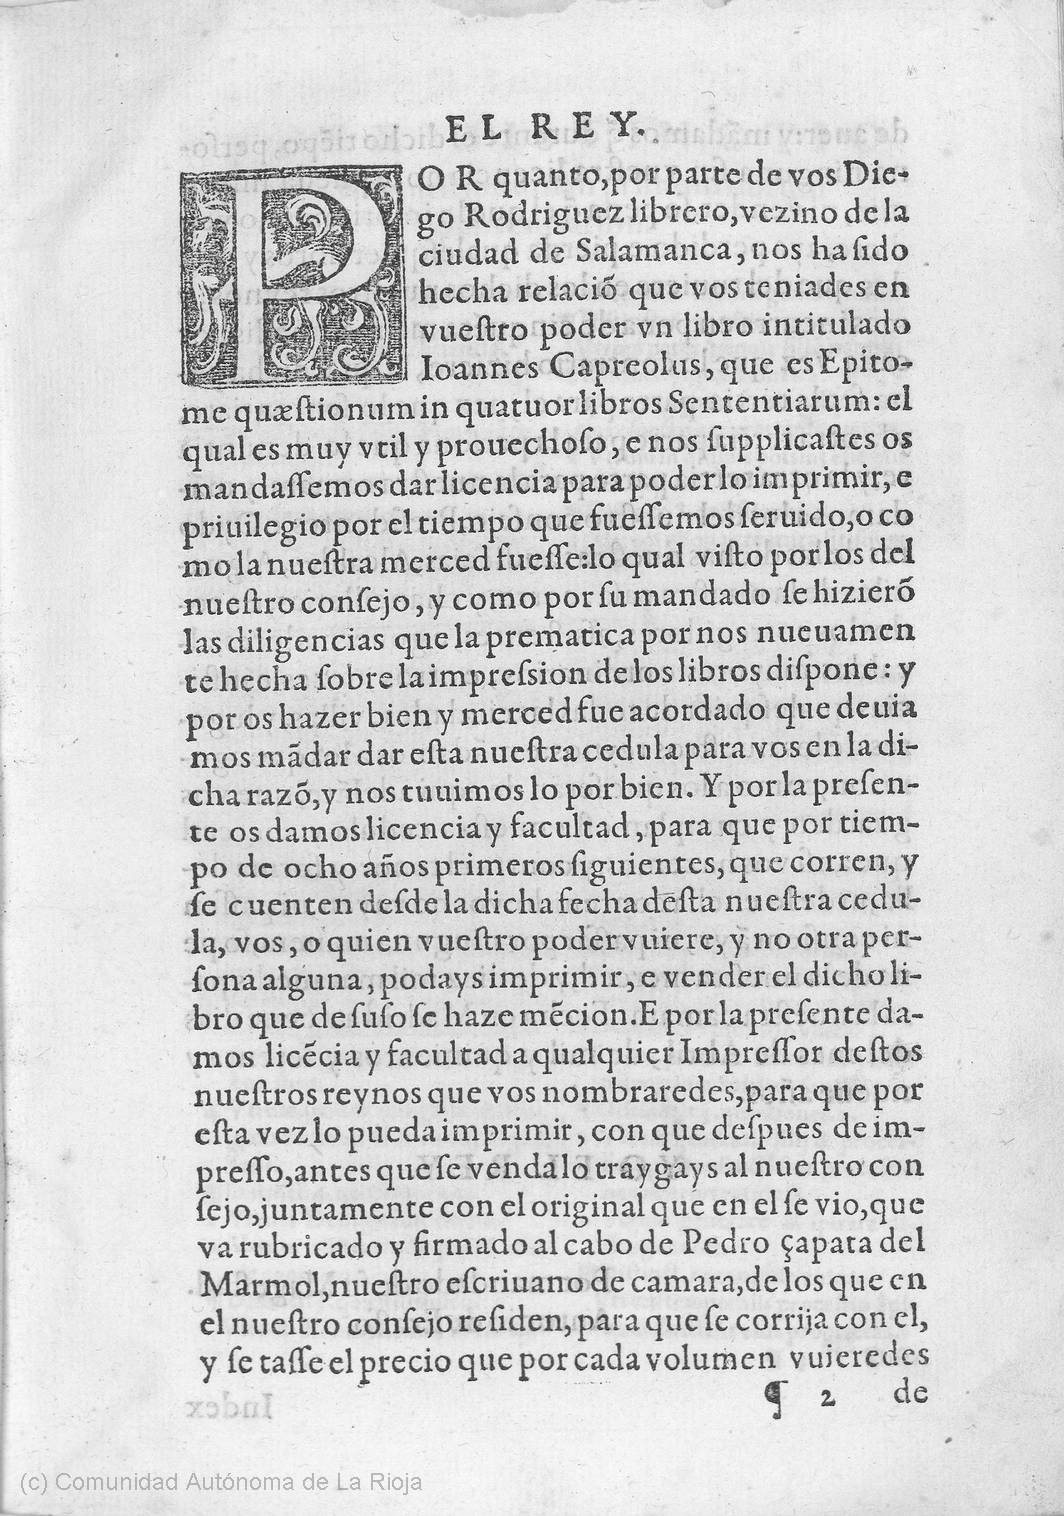 EL REY.
POR quanto, por parte de vos Die-
go Rodriguez librero, vezino de la
ciudad de Salamanca, nos ha ſido
hecha relaciõ que vos teniades en
vueſtro poder vn libro intitulado
Ioannes Capreolus, que es Epito-
me quæſtionum in quatuor libros Sententiarum: el
qual es muy vtil y prouechoſo, e nos ſupplicaſtes os
mandaſſemos dar licencia para poder lo imprimir, e
priuilegio por el tiempo que fueſſemos ſeruido, o co
mo la nueſtra merced fueſſe: lo qual viſto por los del
nueſtro conſejo, y como por ſu mandado ſe hizierõ
las diligencias que la prematica por nos nueuamen
te hecha ſobre la impreſsion de los libros diſpone: y
por os hazer bien y merced fue acordado que deuia
mos mãdar dar eſta nueſtra cedula para vos en la di-
cha razõ, y nos tuuimos lo por bien. Y por la preſen-
te os damos licencia y facultad, para que por tiem-
po de ocho años primeros ſiguientes, que corren, y
ſe cuenten deſde la dicha fecha deſta nueſtra cedu-
la, vos, o quien vueſtro poder vuiere, y no otra per-
ſona alguna, podays imprimir, e vender el dicho li-
bro que de ſuſo ſe haze mẽcion. E por la preſente da-
mos licẽcia y facultad a qualquier Impreſſor deſtos
nueſtros reynos que vos nombraredes, para que por
eſta vez lo pueda imprimir, con que deſpues de im-
preſſo, antes que ſe venda lo traygays al nueſtro con
ſejo, juntamente con el original que en el ſe vio, que
va rubricado y firmado al cabo de Pedro çapata del
Marmol, nueſtro eſcriuano de camara, de los que en
el nueſtro conſejo reſiden, para que ſe corrija con el,
y ſe taſſe el precio que por cada volumen vuieredes
¶ 2 de
(c) Comunidad Autónoma de La Rioja